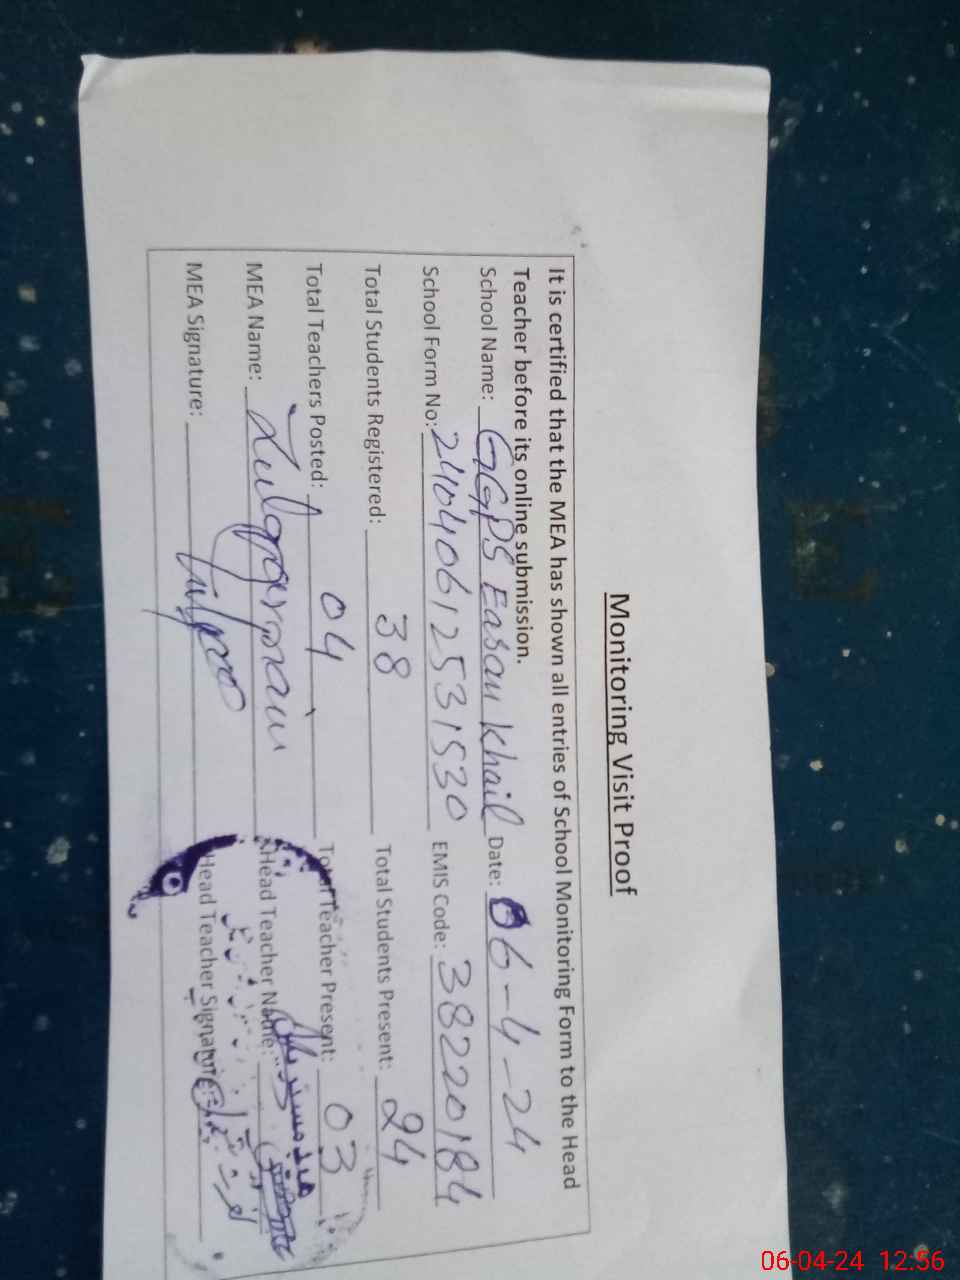 Monitoring Visit Proof
It is certified that the MEA has shown all entries of School Monitoring Form to the Head
Teacher before its online submission.
School Name: GGPS Easau Khail Date: 06-4-24
School Form No: 24040612531530 EMIS Code: 38220184
Total Students Registered: 38 Total Students Present: 24
Total Teachers Posted: 04 Total Teacher Present: 03
MEA Name: Zulqarnain Head Teacher Name:
MEA Signature: Head Teacher Signature:
06-04-24 12:56